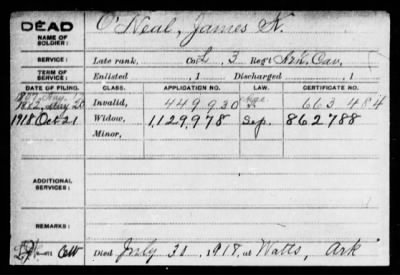 DEAD O'Neal, James N.
NAME OF SOLDIER:
SERVICE: Late rank, Co. L, 3 Reg't Ark. Cav.
TERM OF SERVICE: Enlisted , 1 Discharged , 1
DATE OF FILING. CLASS. APPLICATION NO. LAW. CERTIFICATE NO.
May 20 Invalid, 449930 663484
1918 Oct 21 Widow, 1,129,978 Sep. 862788
Minor,
ADDITIONAL SERVICES:
REMARKS:
Died July 30, 1918, at Watts, Ark